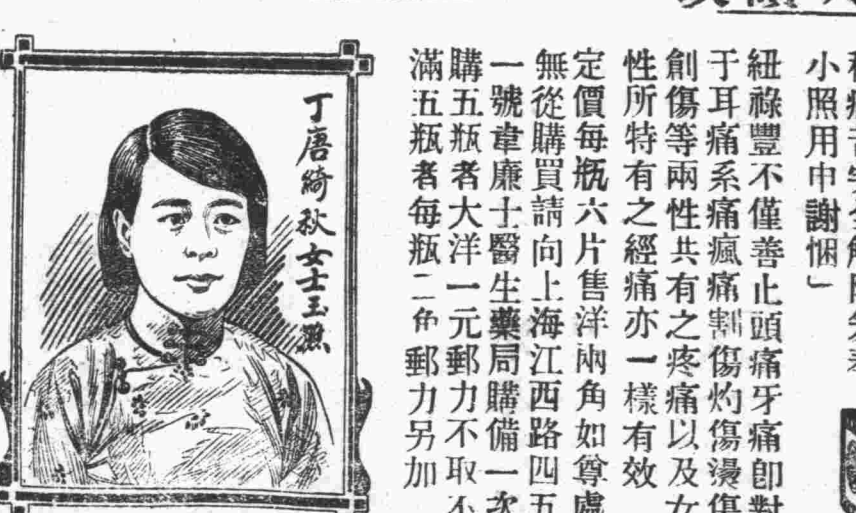 小照用申謝悃」
紐祿豐不僅善止頭痛牙痛卽對
于耳痛系痛瘋痛割傷灼傷燙傷
創傷等兩性共有之疼痛以及女
性所特有之經痛亦一樣有效
定價每瓶六片售洋兩角如尊處
無從購買請向上海江西路四五
一號韋廉士醫生藥局購備一次
購五瓶者大洋一元郵力不取不
滿五瓶者每瓶二角郵力另加
丁唐綺秋女士玉照